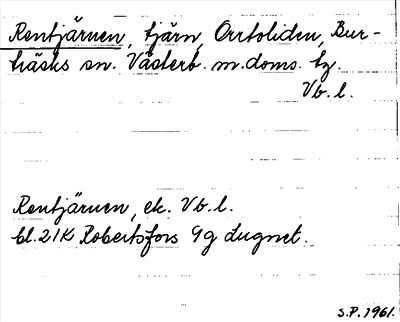 Rentjärnen, tjärn, Orrtoliden, Bur-
träsks sn. Västerb. m. doms. tg.
Vb. l.
Rentjärnen, ek. Vb. l.
bl. 21K Robertsfors 9g Lugnet.
S.P. 1961.